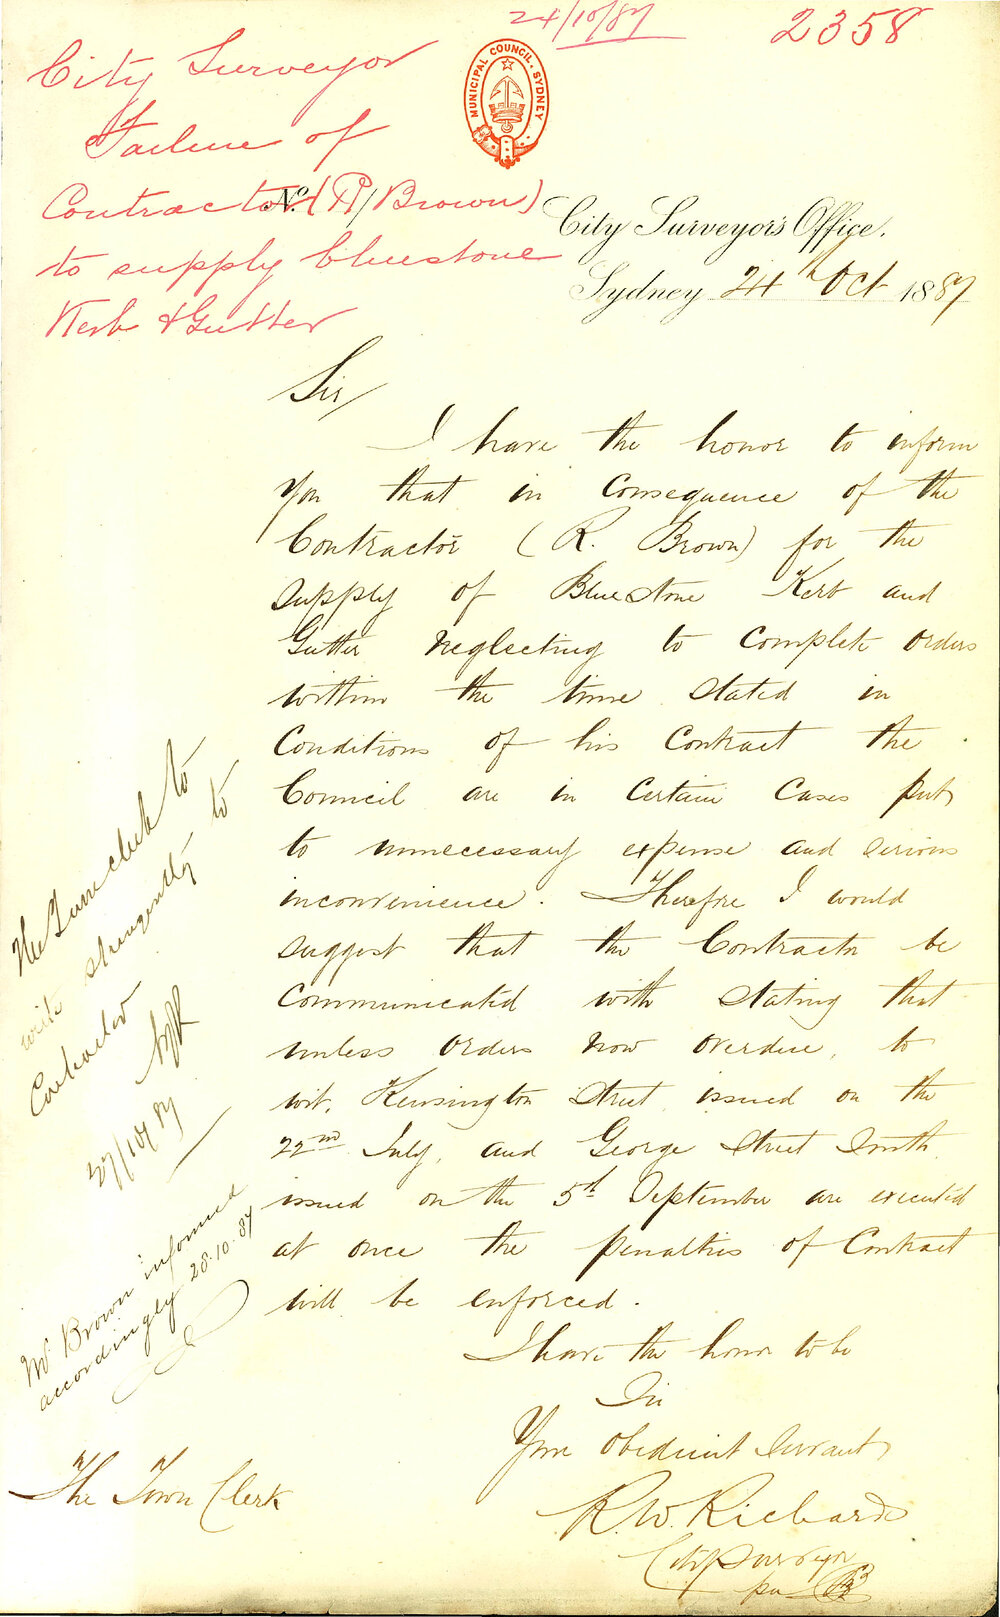 24/10/87
2358
City Surveyor
Failure of
Contractor (R Brown)
to supply bluestone
Kerb & Gutter
MUNICIPAL COUNCIL. SYDNEY
No.
City Surveyor's Office.
Sydney 24th Oct 1887
Sir/
I have the honor to inform
you that in Consequence of the
Contractor (R. Brown) for the
supply of Blue Stone Kerb and
Gutter neglecting to complete orders
within the time stated in
Conditions of his Contract the
Council are in certain Cases put
to unnecessary expense and serious
inconvenience. Therefore I would
suggest that the Contractor be
Communicated with stating that
unless orders now overdue, to
wit, Kensington Street issued on the
22nd July, and George Street South
issued on the 5th September are executed
at once the penalties of Contract
will be enforced.
I have the honor to be
Sir
Your obedient Servant
R. W. Richards
City Surveyor
The Town Clerk
The Town clerk to
write stringently to
Contractor
27/10/87
Mr Brown informed
accordingly 28.10.87